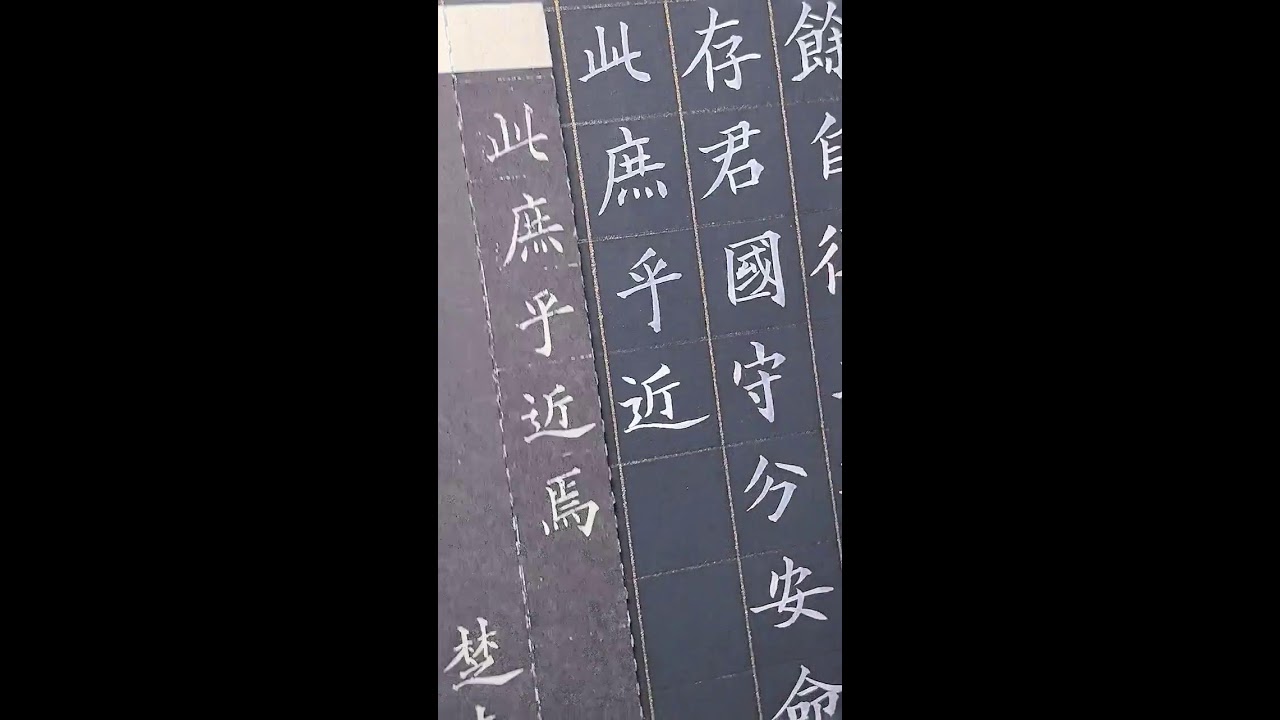 餘自
存君國守分安命
此庶乎近
此庶乎近焉
楚